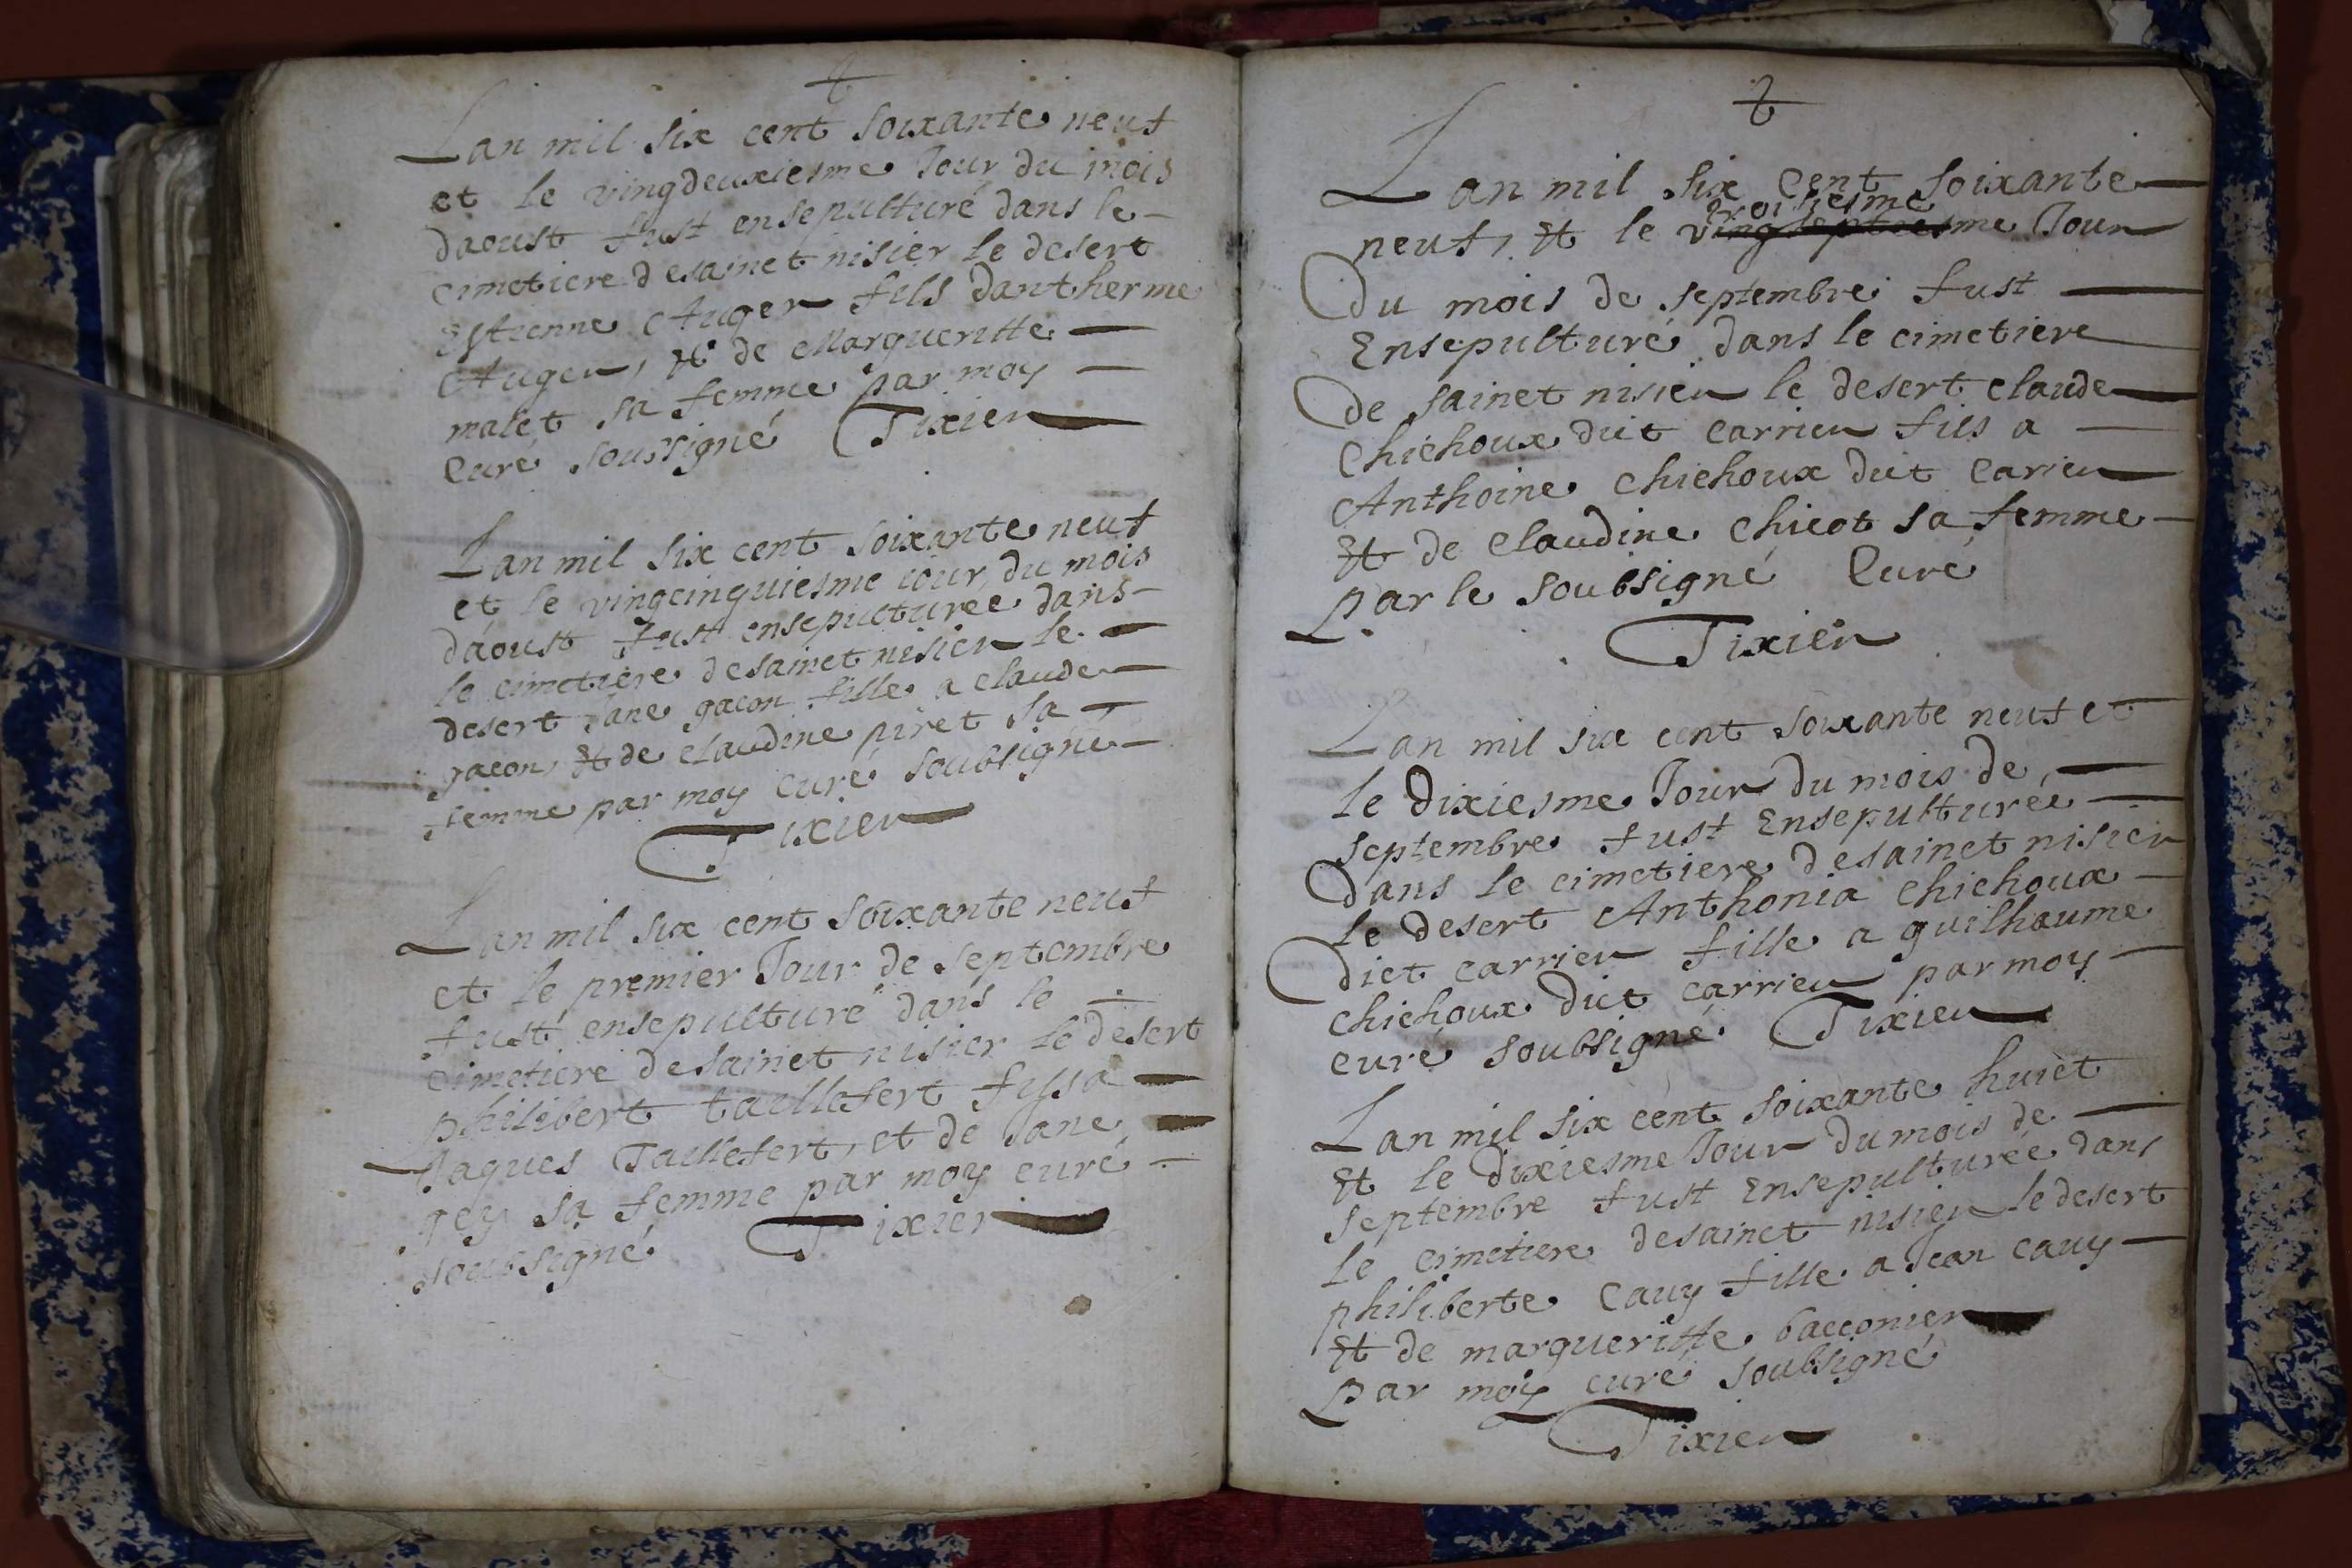 Lan mil six cent soixante neuf
et le vingdeuxiesme Jour du mois
daoust fust ensepulturé dans le
cimetiere de sainct nisier le desert
Estienne Auger fils dantherme
Auger, Et de Margueritte
malet sa femme par moy
Curé soussigné Tixier
Lan mil six cent soixante neuf
et le vingcinquiesme iour du mois
daoust fust ensepulturee dans
le cimetiere de sainct nisier le
desert Jane gacon fille a claude
gacon, Et de claudine piret sa
femme par moy curé soubsigné
Tixier
Lan mil six cent soixante neuf
et le premier Jour de septembre
fust ensepulturé dans le
cimetiere de sainct nisier le desert
philibert taillefert fils a
Jaques Taillefert, et de Jane
gey sa femme par moy curé
soussigné Tixier
Lan mil six Cent soixante
troisiesme
neuf, Et le vingseptiesme Jour
Du mois de septembre fust
Ensepulturé dans le cimetiere
De sainct nisier le desert claude
Chichoux dict Carrier fils a
Anthoine chichoux dict Carier
Et de Claudine Chicot sa femme
par le soubsigné Curé
Tixier
Lan mil six cent soixante neuf et
le Dixiesme Jour Du mois de
septembre fust Ensepulturée
Dans le cimetiere de sainct nisier
le desert Anthonia chichoux
Dict carrier fille a guilhaume
chichoux Dict carrier par moy
curé soubsigné Tixier
Lan mil six cent soixante huict
Et le Dixiesme Jour Du mois de
septembre fust Ensepulturée dans
le cimetiere de sainct nisier le desert
philiberte Cauy fille a Jean cauy
Et de margueritte bacconier
par moy curé soubsigné
Tixier